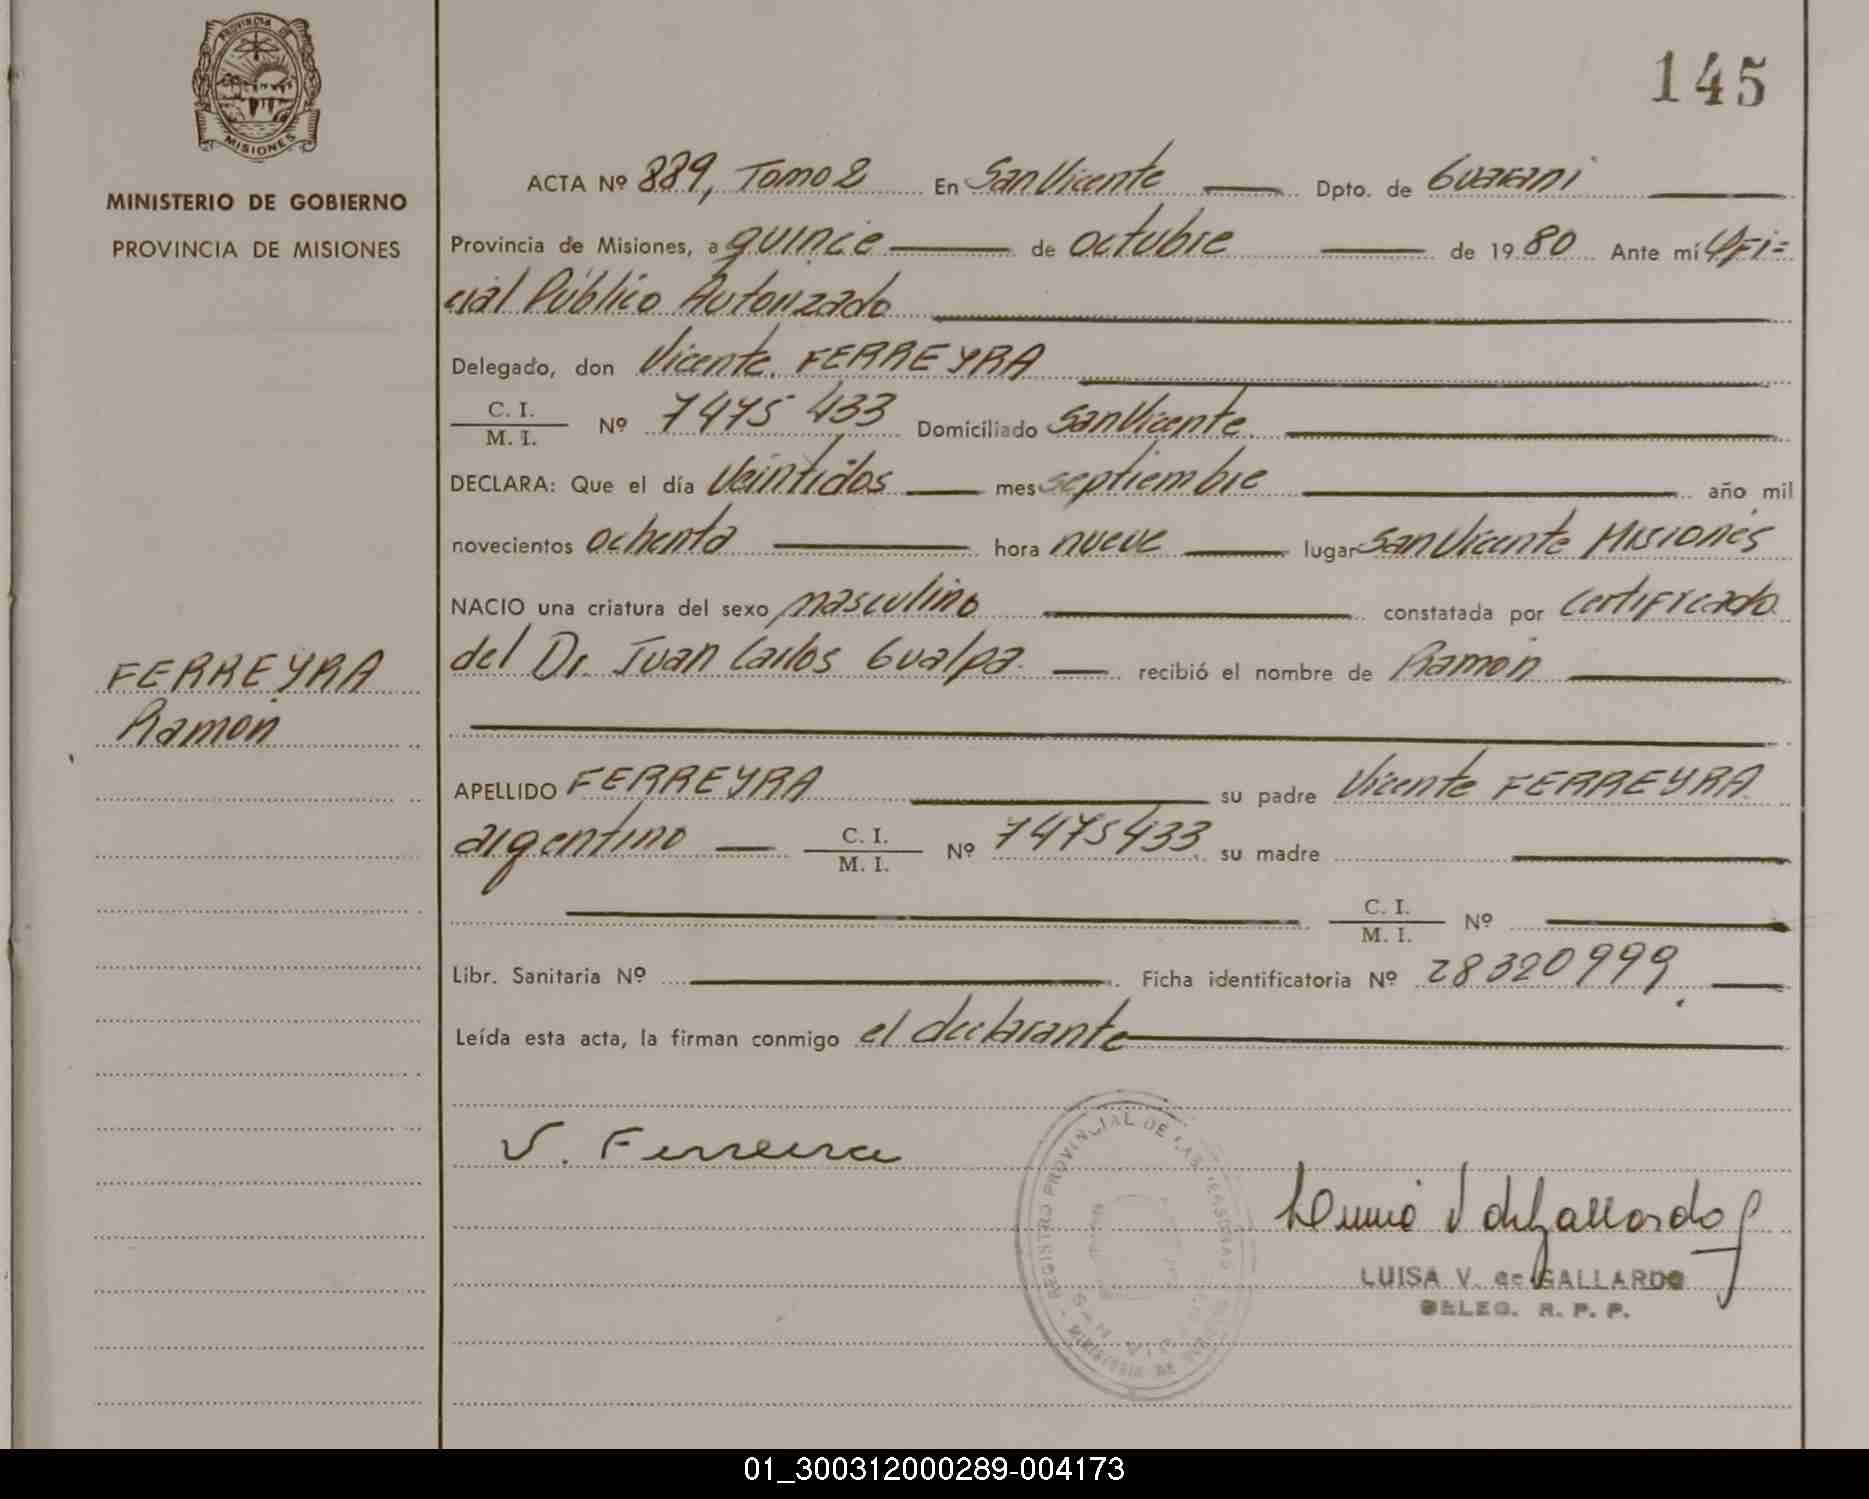 PROVINCIA DE
MISIONES
MINISTERIO DE GOBIERNO
PROVINCIA DE MISIONES
FERREYRA
Ramon
145
ACTA Nº 889, Tomo 2 En San Vicente Dpto. de Guarani
Provincia de Misiones, a quince de octubre de 1980 Ante mí Ofi=
cial Público Autorizado
Delegado, don Vicente FERREYRA
C. I.
M. I. Nº 7475 433 Domiciliado San Vicente
DECLARA: Que el día Veintidos mes septiembre año mil
novecientos ochenta hora nueve lugar San Vicente Misiones
NACIO una criatura del sexo masculino constatada por certificado
del Dr. Juan Carlos Gualpa recibió el nombre de Ramon
APELLIDO FERREYRA su padre Vicente FERREYRA
argentino C. I.
M. I. Nº 7475433 su madre
C. I.
M. I. Nº
Libr. Sanitaria Nº Ficha identificatoria Nº 28320999.
Leída esta acta, la firman conmigo el declarante
V. Ferreira
REGISTRO PROVINCIAL DE LAS PERSONAS
MINISTERIO DE
V de Gallardo
LUISA V. de GALLARDO
DELEG. R. P. P.
01_300312000289-004173